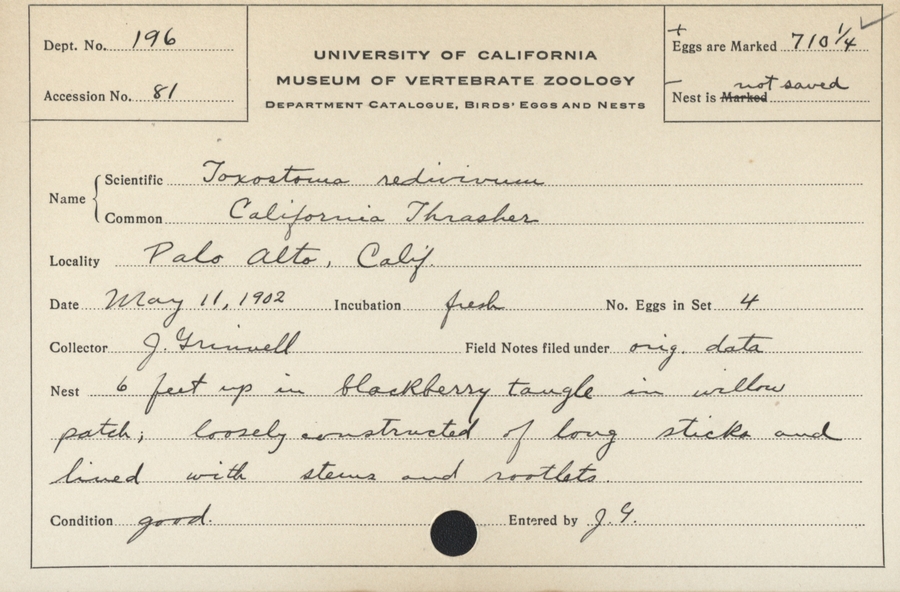 Dept. No. 196
Accession No. 81
UNIVERSITY OF CALIFORNIA
MUSEUM OF VERTEBRATE ZOOLOGY
DEPARTMENT CATALOGUE, BIRDS' EGGS AND NESTS
+
Eggs are Marked 710 1/4 ✓
– not saved
Nest is ~~Marked~~
Name { Scientific Toxostoma redivivum
Common California Thrasher
Locality Palo Alto, Calif.
Date May 11, 1902 Incubation fresh No. Eggs in Set 4
Collector J. Grinnell Field Notes filed under orig. data
Nest 6 feet up in blackberry tangle in willow
patch; loosely constructed of long sticks and
lined with stems and rootlets.
Condition good. Entered by J. G.